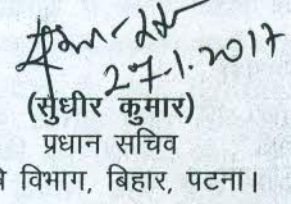 27.1.2017
(सुधीर कुमार)
प्रधान सचिव
विभाग, बिहार, पटना।